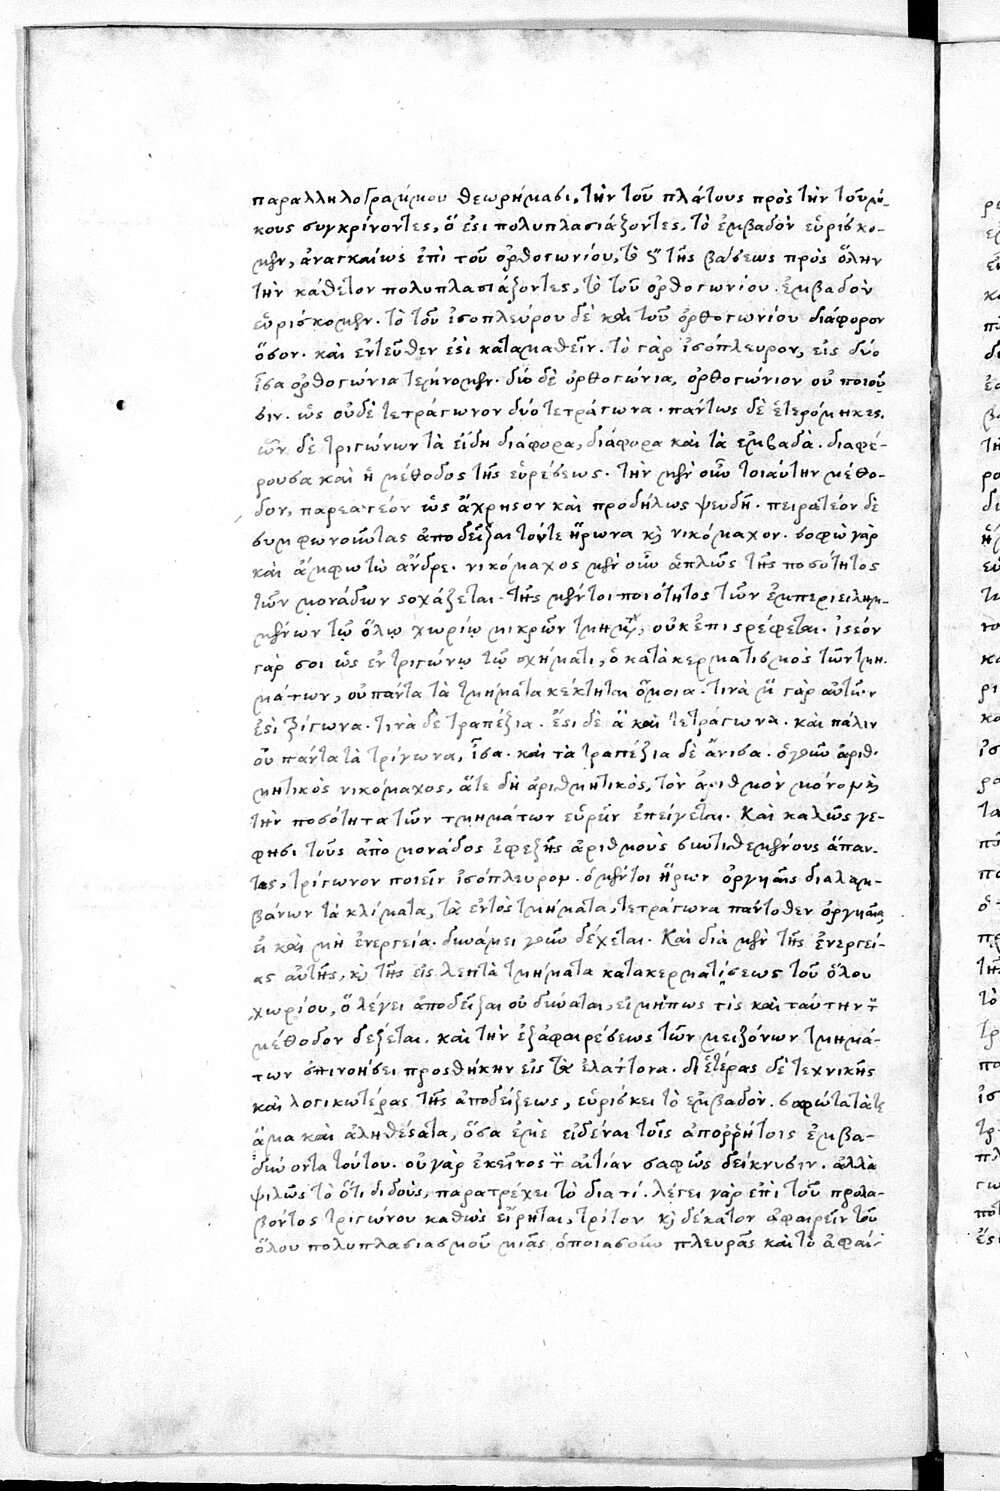 παραλληλογράμμου θεωρήμασι, τὴν τοῦ πλάτους πρὸς τὴν τοῦ μή-
κους συγκρίνοντες, ὅ ἐστι πολυπλασιάζοντες, τὸ ἐμβαδὸν εὑρίσκο-
μεν, ἀναγκαίως ἐπὶ τοῦ ὀρθογωνίου, τὸ τῆς βάσεως πρὸς ὅλην
τὴν κάθετον πολυπλασιάζοντες, τὸ τοῦ ὀρθογωνίου ἐμβαδὸν
εὑρίσκομεν. τὸ τοῦ ἰσοπλεύρου δὲ καὶ τοῦ ὀρθογωνίου διάφορον
ὅσον. καὶ ἐντεῦθεν ἐστὶ καταμαθεῖν. τὸ γὰρ ἰσόπλευρον, εἰς δύο
ἴσα ὀρθογώνια τέμνομεν. δύο δὲ ὀρθογώνια, ὀρθογώνιον οὐ ποιοῦ
σιν. ὡς οὐδὲ τετράγωνον δύο τετράγωνα. πάντως δὲ ἑτερόμηκες.
ὧν δὲ τριγώνων τὰ εἴδη διάφορα, διάφορα καὶ τὰ ἐμβαδά. διαφέ-
ρουσα καὶ ἡ μέθοδος τῆς εὑρέσεως. τὴν μὲν οὖν τοιαύτην μέθο-
δον, παρεατέον ὡς ἄχρηστον καὶ προδήλως ψευδῆ. πειρατέον δὲ
συμφωνοῦντας ἀποδεῖξαι τόντε ἥρωνα κ̀ νικόμαχον. σοφὼ γὰρ
καὶ ἄμφω τὼ ἄνδρε. νικόμαχος μὲν οὖν ἁπλῶς τῆς ποσότητος
τῶν μονάδων στοχάζεται. τῆς μέντοι ποιότητος τῶν ἐμπεριειλημ-
μένων τῷ ὅλῳ χωρίῳ μικρῶν τμημάτων, οὐκ ἐπιστρέφεται. ἰστέον
γάρ σοι ὡς ἐν τριγώνῳ τῷ σχήματι, ὁ κατακερματισμὸς τῶν τμη-
μάτων, οὐ πάντα τὰ τμήματα κέκτηται ὅμοια. τινὰ μὲν γὰρ αὐτῶν
ἐστὶ τρίγωνα. τινὰ δὲ τραπέζια. ἔστι δὲ ἃ καὶ τετράγωνα. καὶ πάλιν
οὐ πάντα τὰ τρίγωνα, ἴσα. καὶ τὰ τραπέζια δὲ ἄνισα. ὁ γοῦν ἀριθ-
μητικὸς νικόμαχος, ἅτε δὴ ἀριθμητικὸς, τὸν ἀριθμὸν μόνον κ̀
τὴν ποσότητα τῶν τμημάτων εὑρεῖν ἐπείγεται. Καὶ καλῶς γέ-
φησι τοὺς ἀπὸ μονάδος ἐφεξῆς ἀριθμοὺς συντιθεμένους ἅπαν-
τας, τρίγωνον ποιεῖν ἰσόπλευρον. ὁ μέντοι ἥρων ὀργυιαῖς διαλαμ-
βάνων τὰ κλίματα, τὰ ἐντὸς τμήματα, τετράγωνα πάντοθεν ὀργυιαῖα
εἰ καὶ μὴ ἐνεργεία. δυνάμει γοῦν δέχεται. Καὶ διὰ μὲν τῆς ἐνεργεί-
ας αὐτῆς, κ̀ τῆς εἰς λεπτὰ τμήματα κατακερματίσεως τοῦ ὅλου
χωρίου, ὃ λέγει ἀποδεῖξαι οὐ δύναται, εἰ μήπως τὶς καὶ ταύτην τὴν
μέθοδον δέξεται. καὶ τὴν ἐξ ἀφαιρέσεως τῶν μειζόνων τμημά-
των ἐπινοήσει προσθήκην εἰς τὰ ἐλάττονα. δι' ἑτέρας δὲ τεχνικῆς
καὶ λογικωτέρας τῆς ἀποδείξεως, εὑρίσκει τὸ ἐμβαδόν. σαφέστατά τε
ἅμα καὶ ἀληθέστατα, ὅσα ἐμὲ εἰδέναι τοῖς ἀπορρήτοις ἐμβα-
δύοντα τούτου. οὐ γὰρ ἐκεῖνος τὴν αἰτίαν σαφῶς δείκνυσιν. ἀλλὰ
ψιλῶς τὸ ὅτι διδοὺς, παρατρέχει τὸ διατί. λέγει γὰρ ἐπὶ τοῦ προλα-
βόντος τριγώνου καθὼς εἴρηται, τρίτον κ̀ δέκατον ἀφαιρεῖν τοῦ
ὅλου πολυπλασιασμοῦ μιᾶς ὁποιασοῦν πλευρᾶς καὶ τὸ ἀφαί-